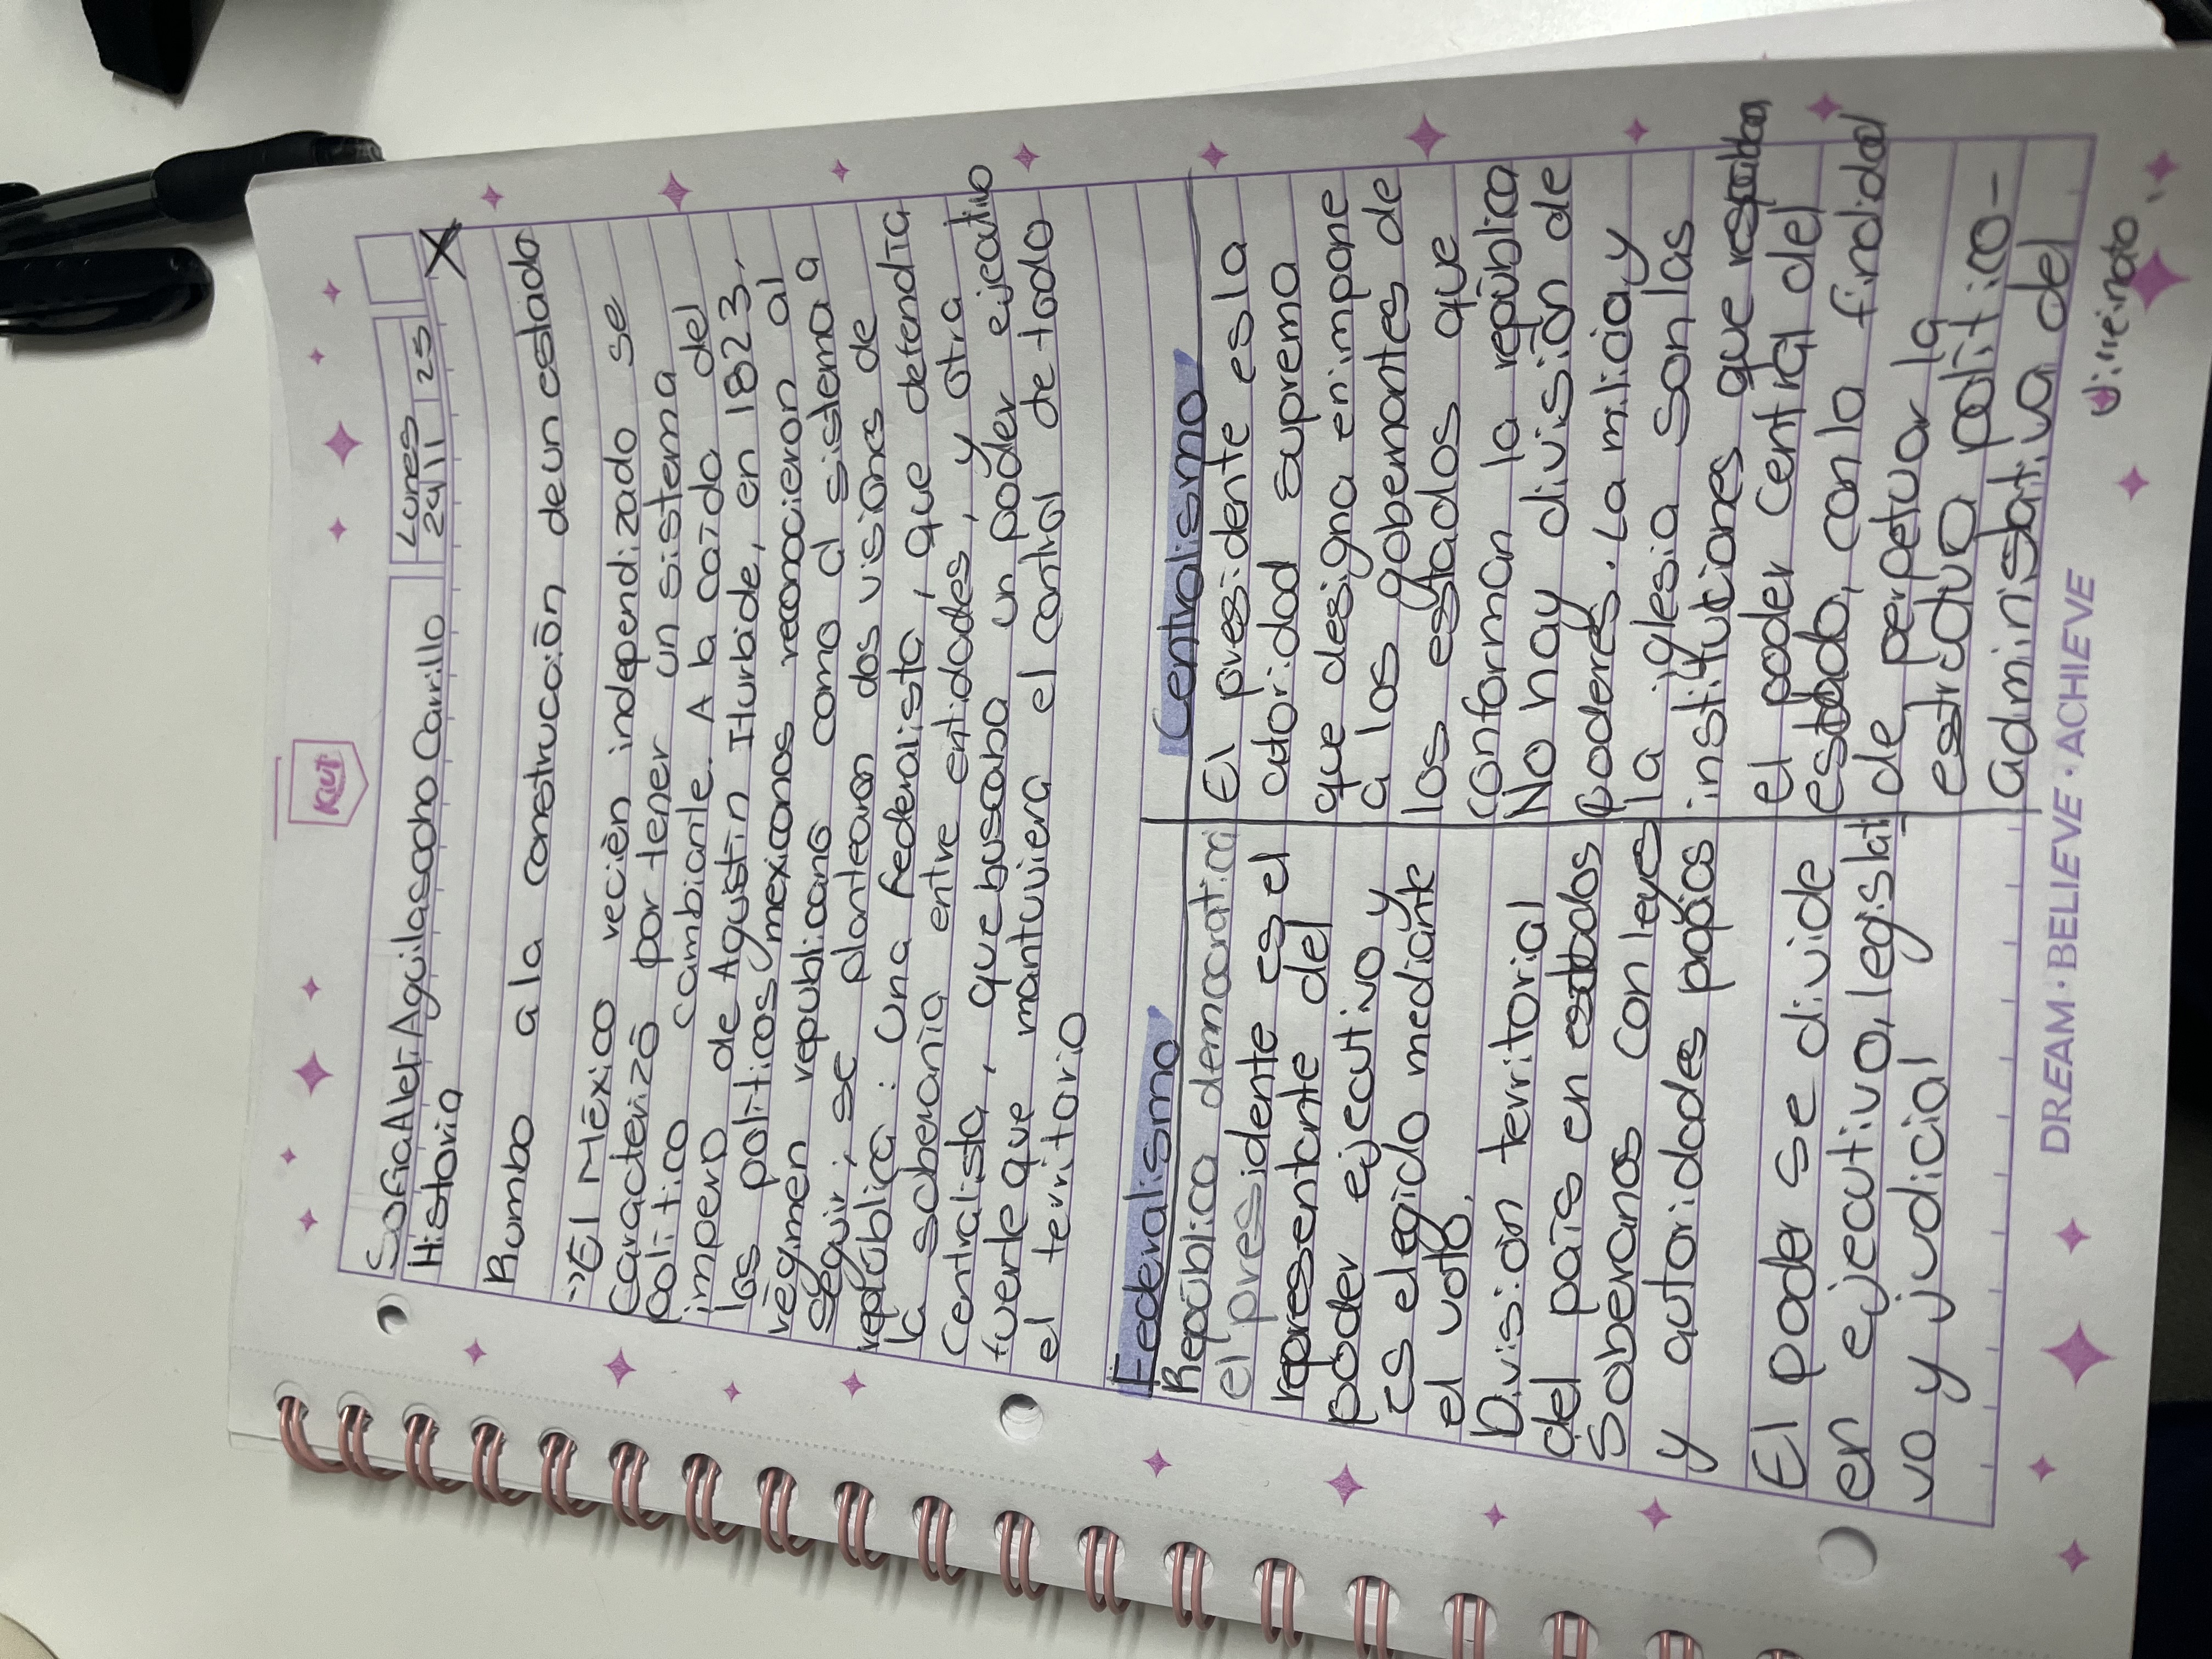 KIUT
Lunes
Sofia Aleti Aguilasocho Carrillo 24/11/25
Historia X
Rumbo a la construcción de un estado
->El México recién independizado se
caracterizó por tener un sistema
político cambiante. A la caída del
imperio de Agustín Iturbide, en 1823,
los políticos mexicanos reconocieron al
régimen republicano como el sistema a
seguir; se plantearon dos visiones de
república: una federalista, que defendía
la soberanía entre entidades, y otra
centralista, que buscaba un poder ejecutivo
fuerte que mantuviera el control de todo
el territorio
Federalismo
República democrática
el presidente es el
representante del
poder ejecutivo y
es elegido mediante
el voto.
División territorial
del país en estados
Soberanos con leyes
y autoridades propias
El poder se divide
en ejecutivo, legislati
vo y judicial
Centralismo
El presidente es la
autoridad suprema
que designa e impone
a los gobernantes de
los estados que
conforman la república
No hay división de
poderes. La milicia y
la iglesia son las
instituciones que respalda
el poder central del
estado, con la finalidad
de perpetuar la
estructura político-
administativa del
virreinato.
DREAM · BELIEVE · ACHIEVE